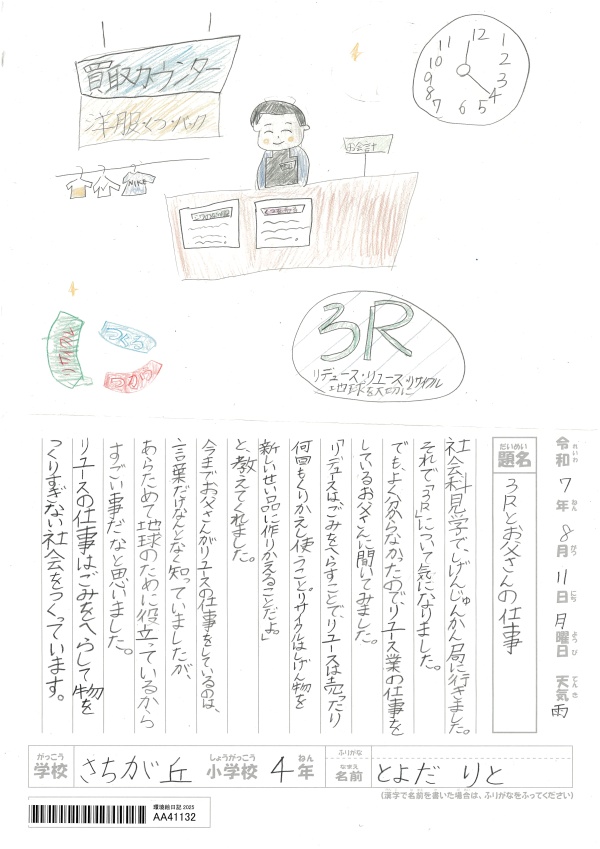 買取カウンター
洋服・くつ・バック
NIKE
お会計
12
1
2
3
4
5
6
7
8
9
10
11
リサイクル
つくる
つかう
3R
リデュース・リユース・リサイクル
地球を大切に
令和 7年 8月 11日 月曜日 天気 雨
れいわ ねん がつ にち ようび てんき
だいめい
題名
3Rとお父さんの仕事
社会科見学で、しげんじゅんかん局に行きました。
それで「3R」について気になりました。
でも、よく分からなかったのでリユース業の仕事を
しているお父さんに聞いてみました。
「リデュースはごみをへらすことで、リユースは売ったり
何回もくりかえし使うこと。リサイクルはしげん物を
新しいせい品に作りかえることだよ。」
と、教えてくれました。
今までお父さんがリユースの仕事をしているのは、
言葉だけなんとなく知っていましたが、
あらためて地球のために役立っているから
すごい事だなと思いました。
リユースの仕事はごみをへらして物を
つくりすぎない社会をつくっています。
がっこう
学校
さちが丘
しょうがっこう
小学校
4
ねん
年
ふりがな
なまえ
名前
とよだ りと
(漢字で名前を書いた場合は、ふりがなをふってください)
環境絵日記 2025
AA41132